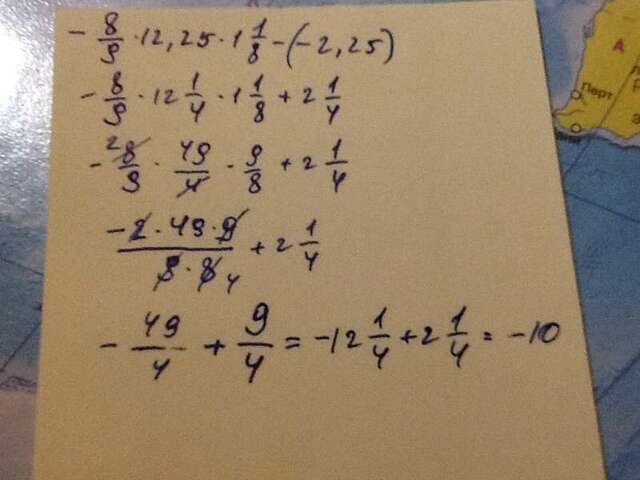 - 8/9 · 12,25 · 1 1/8 - (-2,25)
- 8/9 · 12 1/4 · 1 1/8 + 2 1/4
- 2 8/9 · 49/4 · 9/8 + 2 1/4
-2 · 49 · 9 / 9 · 8 4 + 2 1/4
- 49/4 + 9/4 = -12 1/4 + 2 1/4 = -10
А
Перт